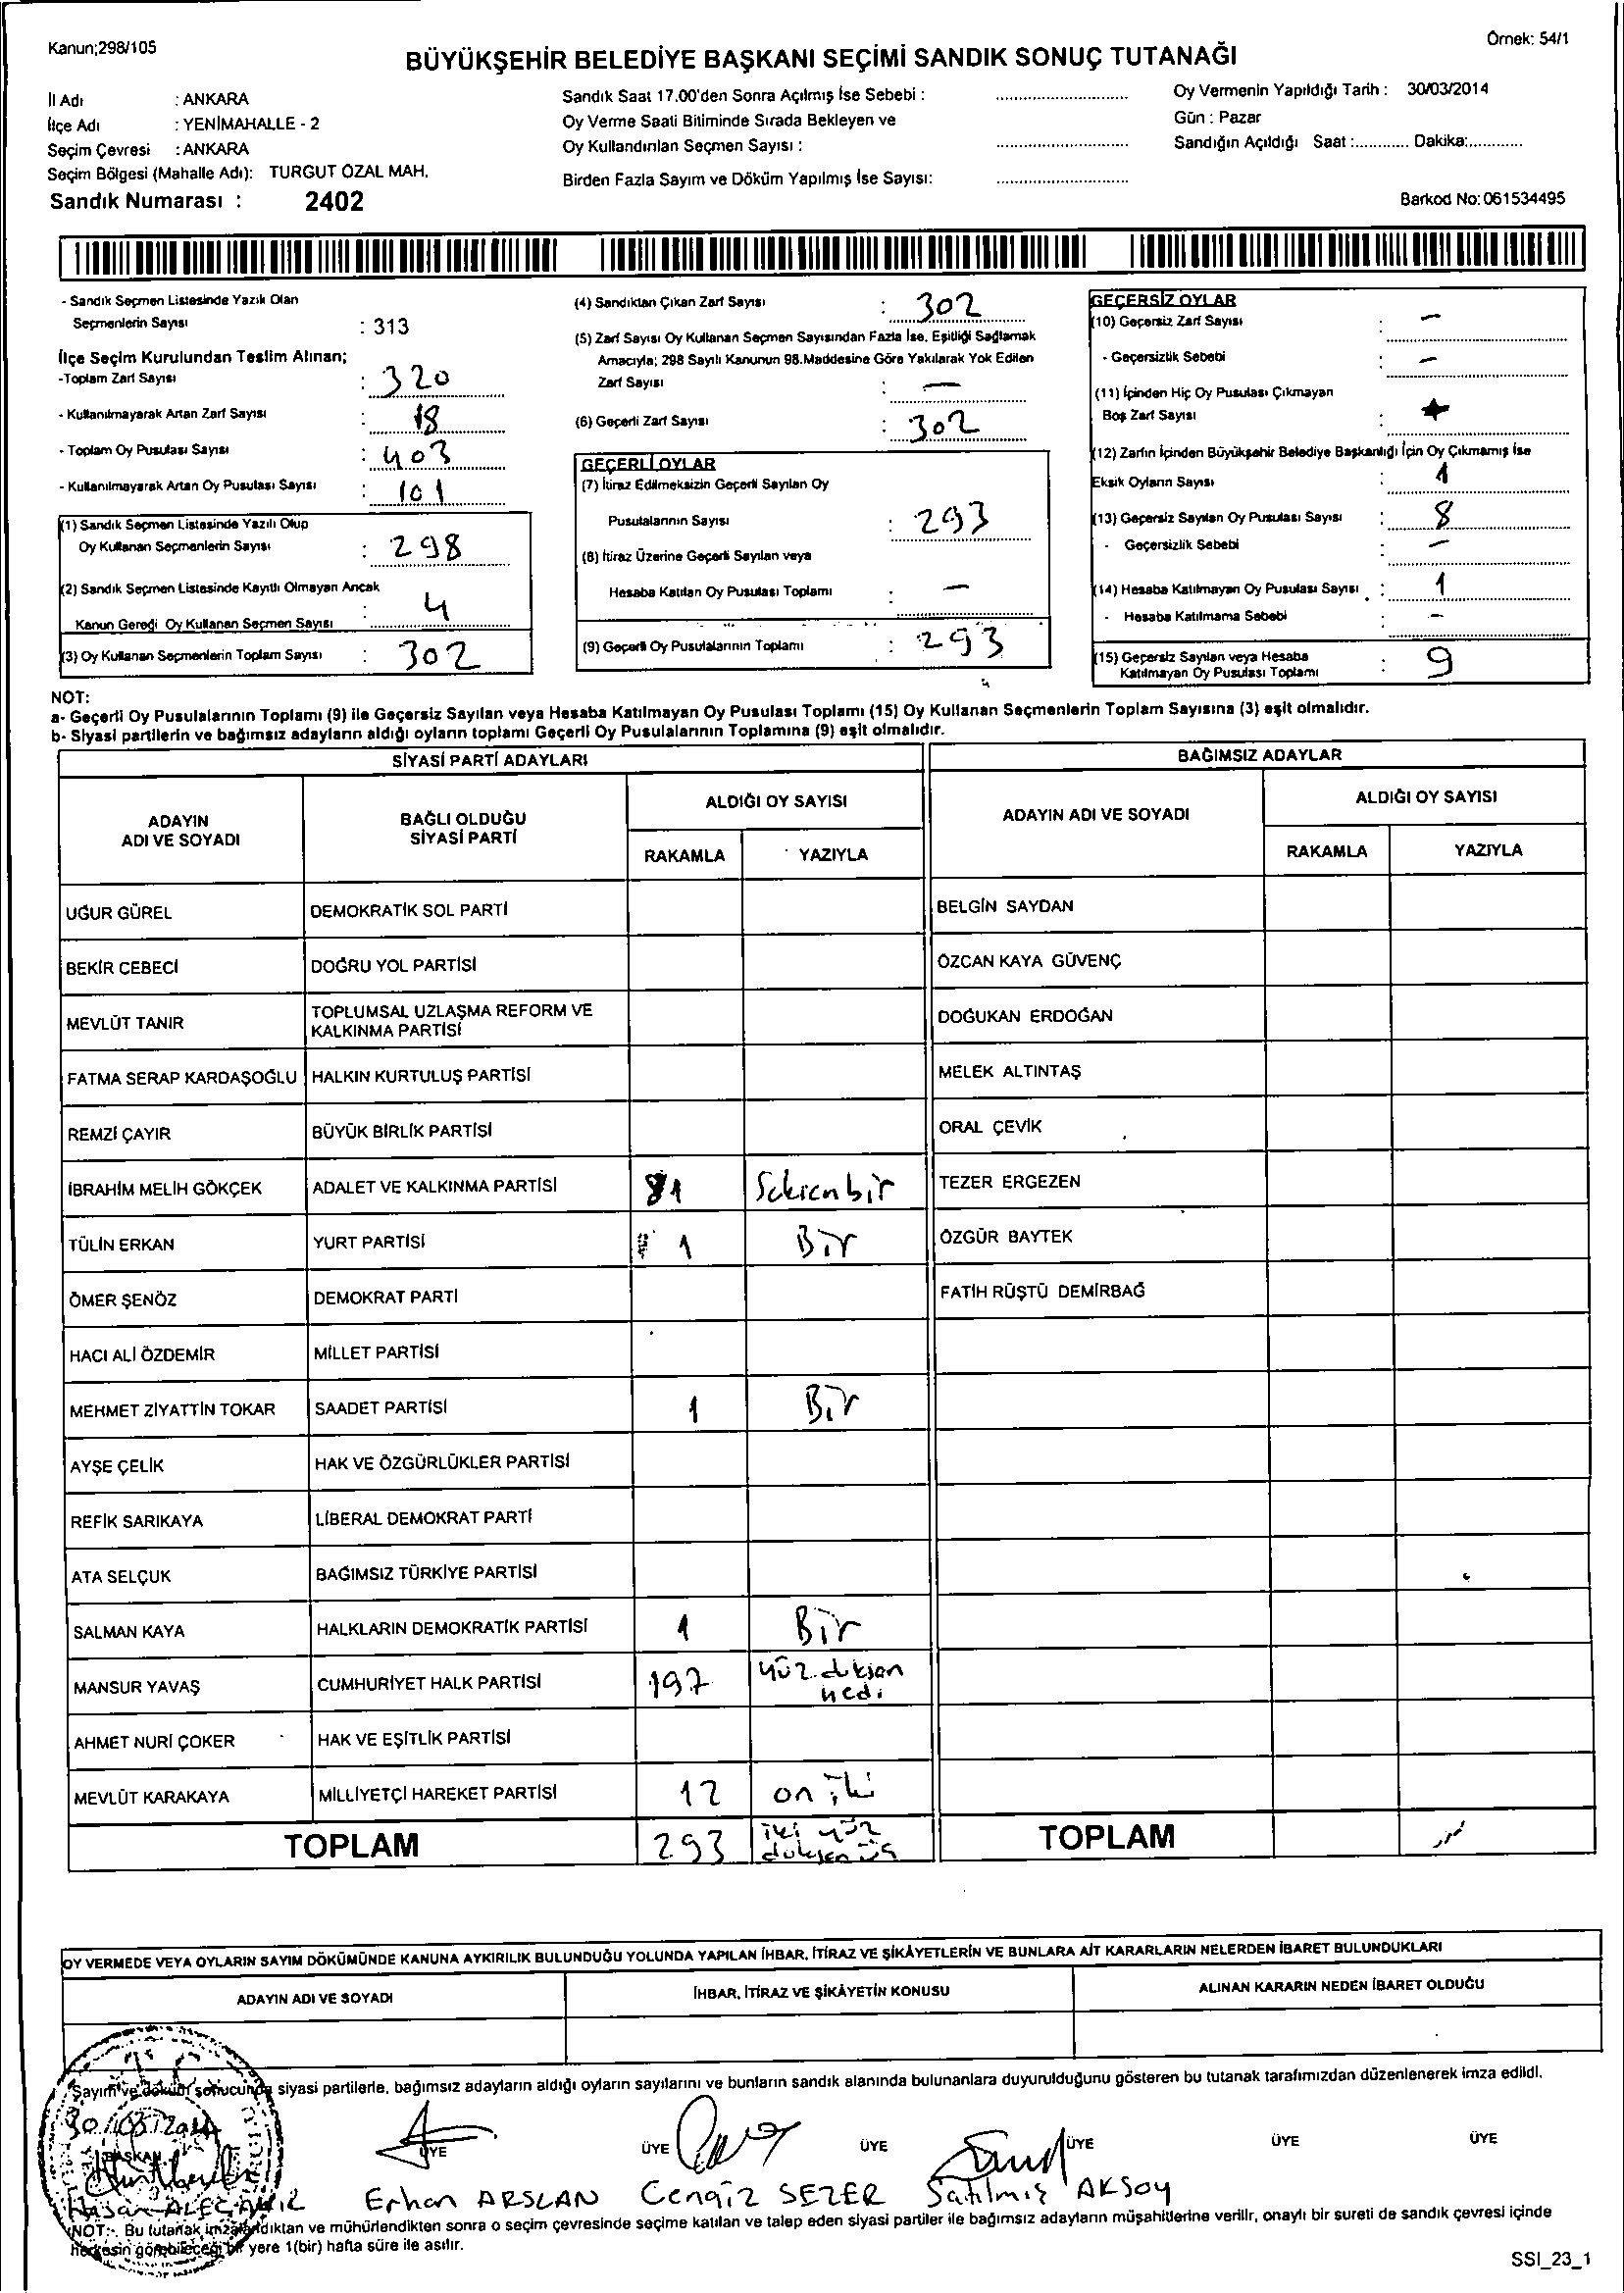 Kanun;298/105
Örnek: 54/1
BÜYÜKŞEHİR BELEDİYE BAŞKANI SEÇİMİ SANDIK SONUÇ TUTANAĞI
İl Adı : ANKARA
İlçe Adı : YENİMAHALLE - 2
Seçim Çevresi : ANKARA
Seçim Bölgesi (Mahalle Adı): TURGUT ÖZAL MAH.
Sandık Numarası : 2402
Sandık Saat 17.00'den Sonra Açılmış İse Sebebi :
Oy Verme Saati Bitiminde Sırada Bekleyen ve
Oy Kullandırılan Seçmen Sayısı :
Birden Fazla Sayım ve Döküm Yapılmış İse Sayısı:
Oy Vermenin Yapıldığı Tarih : 30/03/2014
Gün : Pazar
Sandığın Açıldığı Saat :............ Dakika:............
Barkod No:061534495
- Sandık Seçmen Listesinde Yazılı Olan
Seçmenlerin Sayısı : 313
İlçe Seçim Kurulundan Teslim Alınan;
-Toplam Zarf Sayısı : 320
- Kullanılmayarak Artan Zarf Sayısı : 18
- Toplam Oy Pusulası Sayısı : 403
- Kullanılmayarak Artan Oy Pusulası Sayısı : 101
(1) Sandık Seçmen Listesinde Yazılı Olup
Oy Kullanan Seçmenlerin Sayısı : 298
(2) Sandık Seçmen Listesinde Kayıtlı Olmayan Ancak
Kanun Gereği Oy Kullanan Seçmen Sayısı : 4
(3) Oy Kullanan Seçmenlerin Toplam Sayısı : 302
(4) Sandıktan Çıkan Zarf Sayısı : 302
(5) Zarf Sayısı Oy Kullanan Seçmen Sayısından Fazla İse, Eşitliği Sağlamak
Amacıyla; 298 Sayılı Kanunun 98.Maddesine Göre Yakılarak Yok Edilen
Zarf Sayısı : —
(6) Geçerli Zarf Sayısı : 302
GEÇERLİ OYLAR
(7) İtiraz Edilmeksizin Geçerli Sayılan Oy
Pusulalarının Sayısı : 293
(8) İtiraz Üzerine Geçerli Sayılan veya
Hesaba Katılan Oy Pusulası Toplamı : —
(9) Geçerli Oy Pusulalarının Toplamı : 293
GEÇERSİZ OYLAR
(10) Geçersiz Zarf Sayısı : —
- Geçersizlik Sebebi : —
(11) İçinden Hiç Oy Pusulası Çıkmayan
Boş Zarf Sayısı :
(12) Zarfın İçinden Büyükşehir Belediye Başkanlığı İçin Oy Çıkmamış İse
Eksik Oyların Sayısı : 1
(13) Geçersiz Sayılan Oy Pusulası Sayısı : 8
- Geçersizlik Sebebi : —
(14) Hesaba Katılmayan Oy Pusulası Sayısı : 1
- Hesaba Katılmama Sebebi : —
(15) Geçersiz Sayılan veya Hesaba
Katılmayan Oy Pusulası Toplamı : 9
NOT:
a- Geçerli Oy Pusulalarının Toplamı (9) ile Geçersiz Sayılan veya Hesaba Katılmayan Oy Pusulası Toplamı (15) Oy Kullanan Seçmenlerin Toplam Sayısına (3) eşit olmalıdır.
b- Siyasi partilerin ve bağımsız adayların aldığı oyların toplamı Geçerli Oy Pusulalarının Toplamına (9) eşit olmalıdır.
SİYASİ PARTİ ADAYLARI
ADAYIN ADI VE SOYADI
BAĞLI OLDUĞU SİYASİ PARTİ
ALDIĞI OY SAYISI
RAKAMLA YAZIYLA
UĞUR GÜREL DEMOKRATİK SOL PARTİ
BEKİR CEBECİ DOĞRU YOL PARTİSİ
MEVLÜT TANIR TOPLUMSAL UZLAŞMA REFORM VE KALKINMA PARTİSİ
FATMA SERAP KARDAŞOĞLU HALKIN KURTULUŞ PARTİSİ
REMZİ ÇAYIR BÜYÜK BİRLİK PARTİSİ
İBRAHİM MELİH GÖKÇEK ADALET VE KALKINMA PARTİSİ 81 Seksenbir
TÜLİN ERKAN YURT PARTİSİ 1 Bir
ÖMER ŞENÖZ DEMOKRAT PARTİ
HACI ALİ ÖZDEMİR MİLLET PARTİSİ
MEHMET ZİYATTİN TOKAR SAADET PARTİSİ 1 Bir
AYŞE ÇELİK HAK VE ÖZGÜRLÜKLER PARTİSİ
REFİK SARIKAYA LİBERAL DEMOKRAT PARTİ
ATA SELÇUK BAĞIMSIZ TÜRKİYE PARTİSİ
SALMAN KAYA HALKLARIN DEMOKRATİK PARTİSİ 1 Bir
MANSUR YAVAŞ CUMHURİYET HALK PARTİSİ 197 yüz doksan yedi
AHMET NURİ ÇOKER HAK VE EŞİTLİK PARTİSİ
MEVLÜT KARAKAYA MİLLİYETÇİ HAREKET PARTİSİ 12 on iki
TOPLAM 293 iki yüz doksan üç
BAĞIMSIZ ADAYLAR
ADAYIN ADI VE SOYADI
ALDIĞI OY SAYISI
RAKAMLA YAZIYLA
BELGİN SAYDAN
ÖZCAN KAYA GÜVENÇ
DOĞUKAN ERDOĞAN
MELEK ALTINTAŞ
ORAL ÇEVİK
TEZER ERGEZEN
ÖZGÜR BAYTEK
FATİH RÜŞTÜ DEMİRBAĞ
TOPLAM
OY VERMEDE VEYA OYLARIN SAYIM DÖKÜMÜNDE KANUNA AYKIRILIK BULUNDUĞU YOLUNDA YAPILAN İHBAR, İTİRAZ VE ŞİKÂYETLERİN VE BUNLARA AİT KARARLARIN NELERDEN İBARET BULUNDUKLARI
ADAYIN ADI VE SOYADI
İHBAR, İTİRAZ VE ŞİKÂYETİN KONUSU
ALINAN KARARIN NEDEN İBARET OLDUĞU
Sayım ve döküm sonucunda siyasi partilerle, bağımsız adayların aldığı oyların sayılarını ve bunların sandık alanında bulunanlara duyurulduğunu gösteren bu tutanak tarafımızdan düzenlenerek imza edildi.
30/03/2014
BAŞKAN ÜYE ÜYE ÜYE ÜYE ÜYE ÜYE
Hasan Erhan ARSLAN Cengiz SEZER Satılmış AKSOY
NOT:- Bu tutanak imzalandıktan ve mühürlendikten sonra o seçim çevresinde seçime katılan ve talep eden siyasi partiler ile bağımsız adayların müşahitlerine verilir, onaylı bir sureti de sandık çevresi içinde
herkesin görebileceği bir yere 1(bir) hafta süre ile asılır.
SSI_23_1